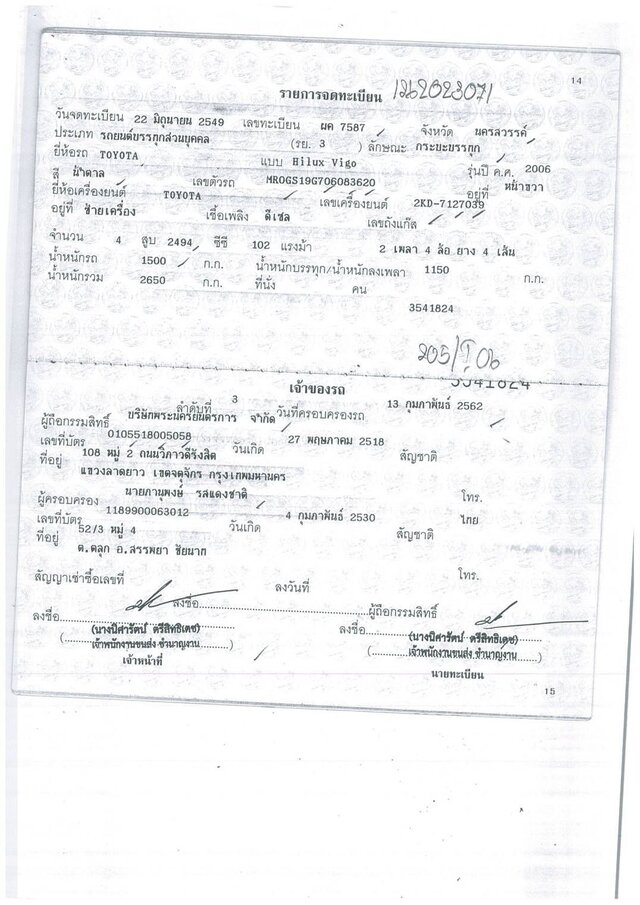 14
รายการจดทะเบียน
วันจดทะเบียน 22 มิถุนายน 2549 เลขทะเบียน ผค 7587 จังหวัด นครสวรรค์
ประเภท รถยนต์บรรทุกส่วนบุคคล (รย. 3) ลักษณะ กระบะบรรทุก
ยี่ห้อรถ TOYOTA แบบ Hilux Vigo รุ่นปี ค.ศ. 2006
สี น้ำตาล เลขตัวรถ MROGS19G706083620 อยู่ที่ หน้าขวา
ยี่ห้อเครื่องยนต์ TOYOTA เลขเครื่องยนต์ 2KD-7127039
อยู่ที่ ซ้ายเครื่อง เชื้อเพลิง ดีเซล เลขถังแก๊ส
จำนวน 4 สูบ 2494 ซีซี 102 แรงม้า 2 เพลา 4 ล้อ ยาง 4 เส้น
น้ำหนักรถ 1500 ก.ก. น้ำหนักบรรทุก/น้ำหนักลงเพลา 1150 ก.ก.
น้ำหนักรวม 2650 ก.ก. ที่นั่ง คน
3541824
3541824
เจ้าของรถ
ลำดับที่ 3 วันที่ครอบครองรถ 13 กุมภาพันธ์ 2562
ผู้ถือกรรมสิทธิ์ บริษัทพระนครยนตรการ จำกัด
เลขที่บัตร 0105518005058 วันเกิด 27 พฤษภาคม 2518 สัญชาติ
ที่อยู่ 108 หมู่ 2 ถนนวิภาวดีรังสิต
แขวงลาดยาว เขตจตุจักร กรุงเทพมหานคร
โทร.
ผู้ครอบครอง นายภานุพงษ์ รสแดงชาติ
เลขที่บัตร 1189900063012 วันเกิด 4 กุมภาพันธ์ 2530 สัญชาติ ไทย
ที่อยู่ 52/3 หมู่ 4
ต.ตลุก อ.สรรพยา ชัยนาท
โทร.
สัญญาเช่าซื้อเลขที่ ลงวันที่
ลงชื่อ ผู้ถือกรรมสิทธิ์
ลงชื่อ ลงชื่อ
(นางนิศารัตน์ ตรีสิทธิเดช) (นางนิศารัตน์ ตรีสิทธิเดช)
(เจ้าพนักงานขนส่ง ชำนาญงาน) (เจ้าพนักงานขนส่ง ชำนาญงาน)
เจ้าหน้าที่ นายทะเบียน
15